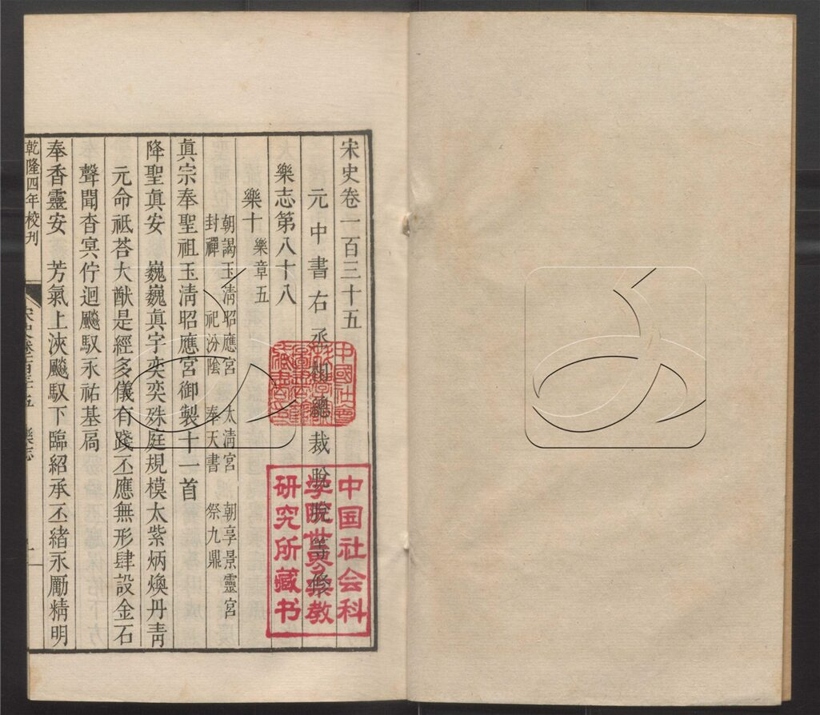 宋史卷一百三十五
元中書右丞相總裁脫脫等修
樂志第八十八
樂十 樂章五
朝謁玉清昭應宮 太清宮 朝享景靈宮
封禪 祀汾陰 奉天書 祭九鼎
真宗奉聖祖玉清昭應宮御製十一首
降聖真安 巍巍真宇奕奕殊庭規模太紫炳煥丹青
元命祗荅大猷是經多儀有踐丕應無形肆設金石
聲聞杳冥佇迴飇馭永祐基扃
奉香靈安 芳氣上浹飇馭下臨紹承丕緒永勵精明
乾隆四年校刊
宋史卷一百三十五 樂志 一
中国社会科
学院世界宗教
研究所藏书